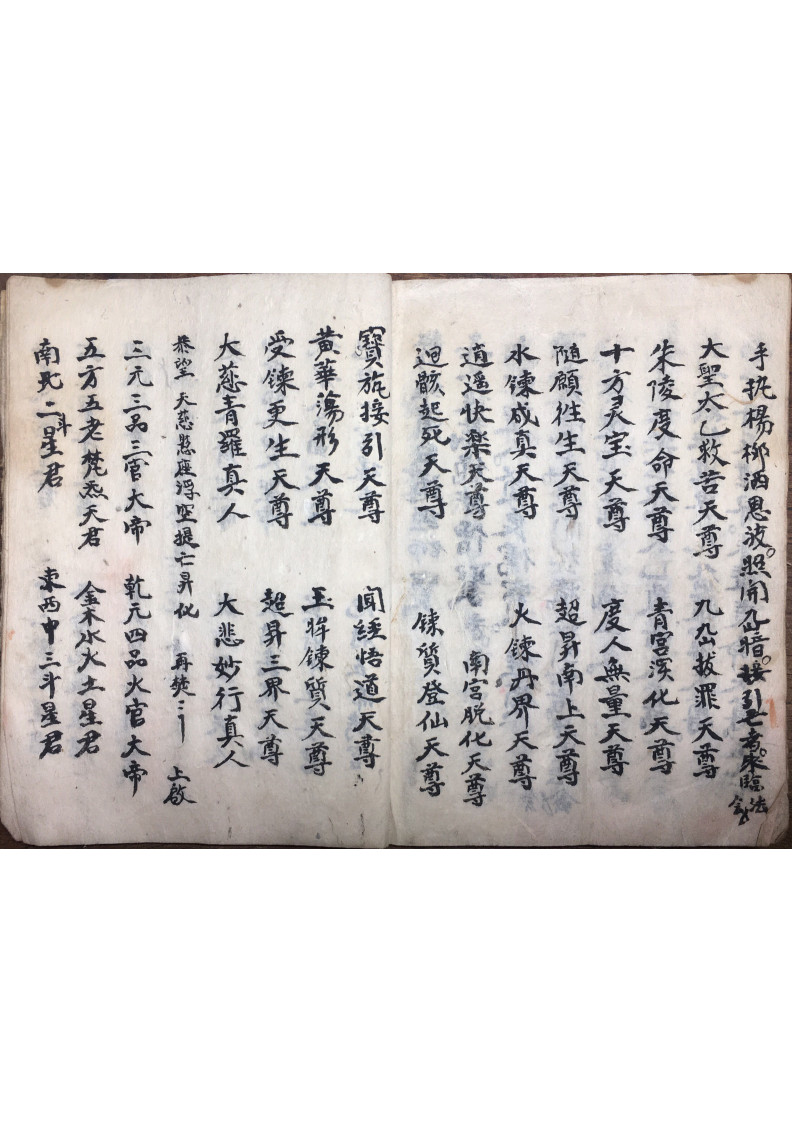 手执楊柳洒恩波。照開幽暗。接引亡者。來臨法會
大聖太乙救苦天尊　九幽拔罪天尊
朱陵度命天尊　青宮溪化天尊
十方灵宝天尊　度人無量天尊
随願徃生天尊　超昇南上天尊
水鍊成真天尊　火鍊丹界天尊
逍遥快楽天尊　南宮脱化天尊
迴骸起死天尊　鍊質登仙天尊
寶旛接引天尊　聞經悟道天尊
黄華蕩形天尊　玉眸鍊質天尊
受鍊更生天尊　超昇三界天尊
大慈青羅真人　大悲妙行真人
恭望　天慈懸座浮空提亡昇化　再焚　上啟
三元三品三官大帝　乾元四品火官大帝
五方五老梵炁天君　金木水火土星君
南北二斗星君　東西中三斗星君